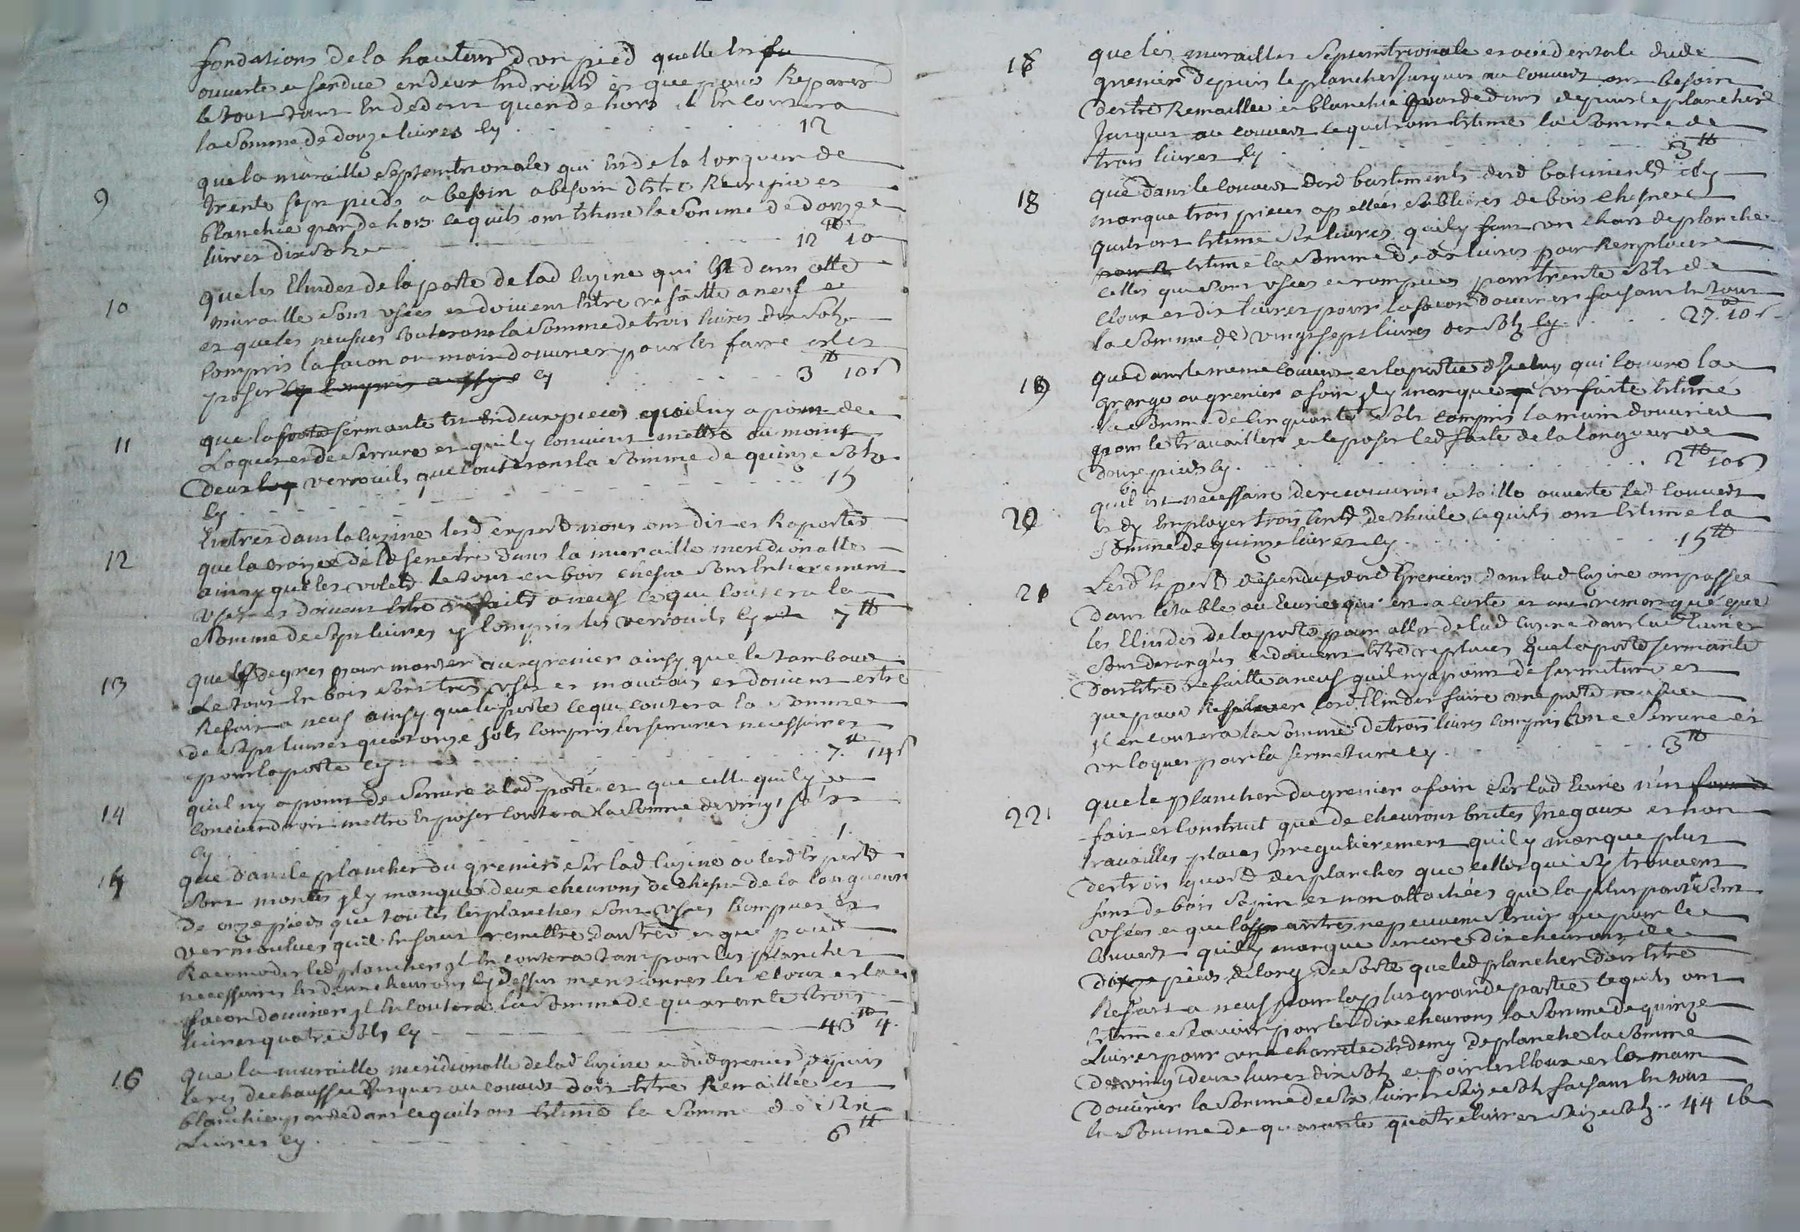 fondations de la hauteur d'un pied quelle est
ouverte et fendue en deux endroits et que pour Reparer
le tout tant en dedans quen dehors il en coutera
la somme de douze livres Cy 12
9 que la muraille septentrionale qui est de la longueur de
trente sept pieds a besoin a besoin destre Recrepie et
blanchie par dehors ce quils ont estimé la somme de douze
livres dix sols 12tt 10
10 que les Elindes de la porte de lad cuzine qui est dans cette
muraille sont usées et doivent estre refaitte a neuf et
et que les neufves couteront la somme de trois livres dix sols
compris la facon ou main douvrier pour les faire et les
poser cy compris aussy cy 3tt 10s
11 que la porte fermante est en deux pieces quil ny a point de
Loquet et de serrure et quil y convient mettre au moins
deux verrouils, que couteront la somme de quinze sols
Cy 15
12 Entrés dans la cuzine lesd experts nous ont dit et Raporté
que la croisée de la fenetre dans la muraille meridionalle
ainsy que les volets le tout en bois chesne sont entierement
usez et doivent estre faits a neuf ce que coutera la
somme de sept livres y compris les verrouils cy 7tt
13 que les degres pour monter au grenier ainsy que le tambour
le tout en bois sont tres uses et mauvais et doivent estre
Refait a neuf ainsy que la porte ce qui coutera la somme
de sept livres quatorze sols compris les serrures necessaires
pour la porte cy 7tt 14s
14 quil ny a point de serrure a lad porte et que celle quil y
conviendra mettre et poser coutera la somme de vingt sols
cy 1.
15 que dans le plancher du grenier sur lad cuzine ou lesd experts
sont montés il y manque deux chevrons de chesne de la longueur
de onze pieds que toutes les planches sont usées Rompues et
vermoulues quil en faut remettre dautres et que pour
Racomoder led plancher il en coutera tant pour les planches
necessaires les deux chevrons cy dessus mentionnes les cloux et la
facon douvrier il en coutera la somme de quarante trois
livres quatre sols cy 43tt 4.
16 que la muraille meridionalle de lad cuzine et dud grenier depuis
le rez de chaussée Jusques au couvert doit estre Remaillée et
blanchie par dedans ce quils ont estimé la somme de six
Livres cy 6tt
17 que les murailles septentrionale et occidentale dud
grenier depuis le plancher Jusques au couvert ont besoin
destre Remaillée et blanchie par dedans depuis le plancher
Jusques au couvert ce quils ont estimé la somme de
trois livres cy 3tt
18 que dans le couvert desd bastiments desd batiments il y
manque trois pieces apellées sablieres de bois chesne
quils ont estimé six livres, quil y faut un chart de planche
estimé la somme de dix livres pour Remplacer
celles qui sont usées et rompues pour trente sols de
cloux et dix livres pour la facon douvrier faisant le tout
la somme de vingt sept livres dix sols cy 27tt 10s
19 que dans le meme couvert et la partie dicelluy qui couvre la
grange ou grenier a foin il y manque un faite estimé
la somme de cinquante sols compris la main douvrier
pour le travailler et le poser led faite de la longueur de
douze pieds cy 2tt 10s
20 quil est necessaire de recouvrir a taille ouverte led couvert
et dy Employer trois cents de thuile, ce quils ont estimé la
somme de quinze livres cy 15tt
21 Lesd Experts descendus desd Greniers dans lad cuzine ont passée
dans letable ou Ecurie qui est a costé et ont remarqué que
les Elindes de la porte pour aller de lad cuzine dans lad Ecurie
sont derangés et doivent estre replacés que la porte fermante
doit estre refaitte a neuf quil ny a point de fermeture et
que pour Replacer lesd Elindes faire une porte neufve
il en coutera la somme de trois livres compris une serrure et
un loquet pour la fermeture cy 3tt
22 que le plancher du grenier a foin sur lad Ecurie n'est
fait et construit que de chevrons brutes Inegaux et non
travaillés placés Irregulierement quil y manque plus
des trois quarts des planches que celles qui sy trouvent
sont de bois sapin et non attachées que la plus part sont
usées et que les autres ne peuvent servir que pour le
couvert quil y manque encore dix chevrons de
pieds de long de sorte que led plancher doit estre
Refait a neuf pour la plus grande partie ce quils ont
estimé scavoir pour les dix chevrons la somme de quinze
Livres pour une charrette et demy de planche la somme
de vingt deux livres dix sols et pour les cloux et la main
douvrier la somme de six livres seize sols faisant en tout
la somme de quarante quatre livres seize sols 44 16